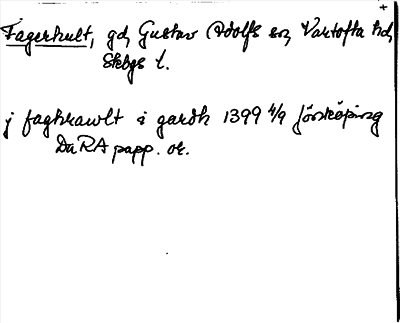 Fagerhult, gd, Gustav Adolfs sn, Vartofta hd,
Skbgs l.
j faghrawlt i gardh 1399 4/9 Jönköping
Da RA papp. or.